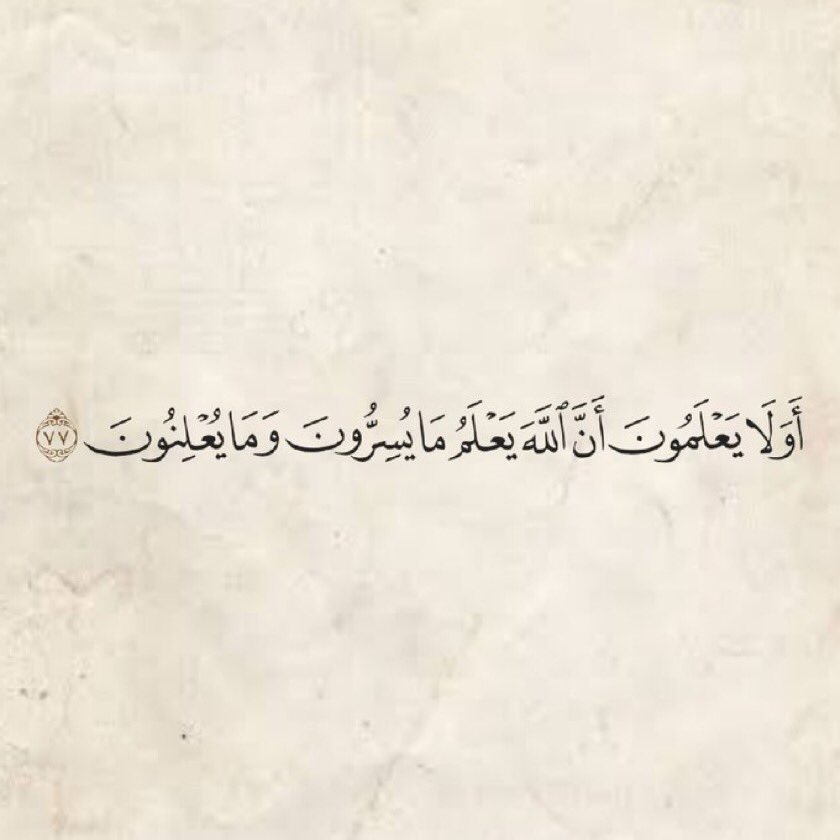 أَوَلَا يَعْلَمُونَ أَنَّ ٱللَّهَ يَعْلَمُ مَا يُسِرُّونَ وَمَا يُعْلِنُونَ ٧٧